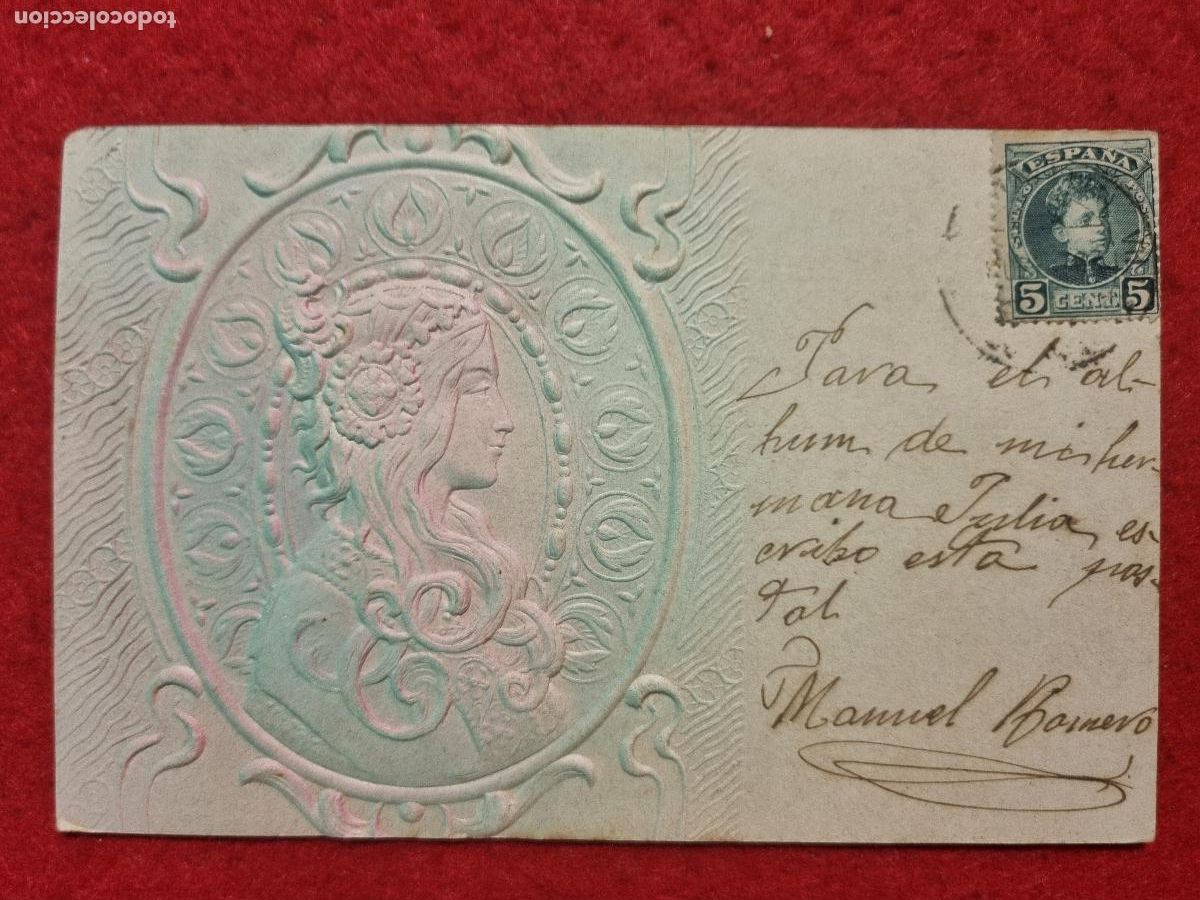 todocoleccion
ESPAÑA
5 CENT 5
Para el al-
bum de mi her-
mana Julia, es-
cribo esta pos-
tal
Manuel Romero